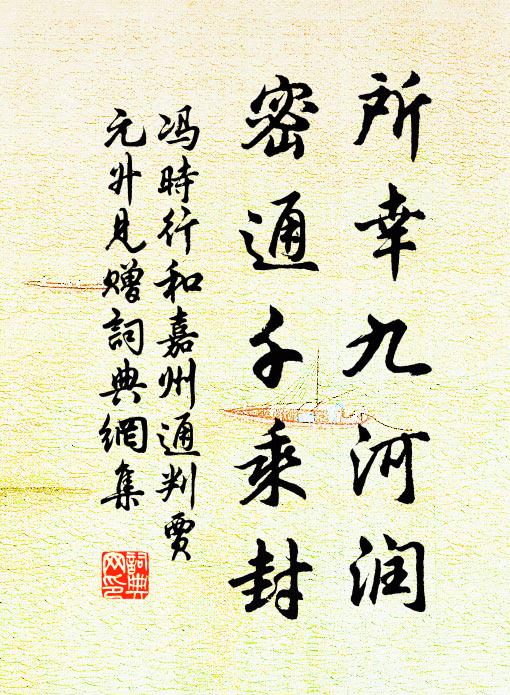 所幸九河润
密通千乘封
冯時行和嘉州通判贾
元升見赠詞典網集
詞典
网印